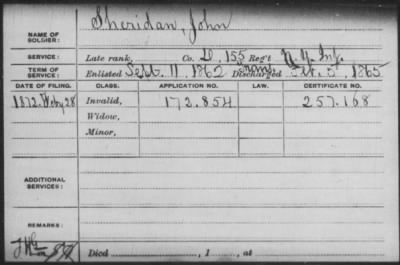 Sheridan, John
NAME OF SOLDIER:
SERVICE: Late rank, Co. D, 155 Reg't N.Y. Inf.
TERM OF SERVICE: Enlisted Sept. 11, 1862 Discharged Oct. 5, 1865
DATE OF FILING. CLASS. APPLICATION NO. LAW. CERTIFICATE NO.
1872. Feby 28 Invalid, 172.854 257.168
Widow,
Minor,
ADDITIONAL SERVICES:
REMARKS:
Died , 1 , at